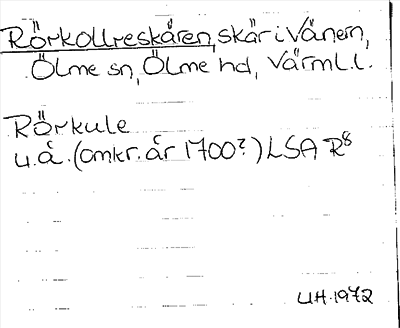 Rörkollreskären, skär i Vänern,
Ölme sn, Ölme hd, Värml. l.
Rörkule
u.å. (omkr. år 1700?) LSA R8
UH 1972